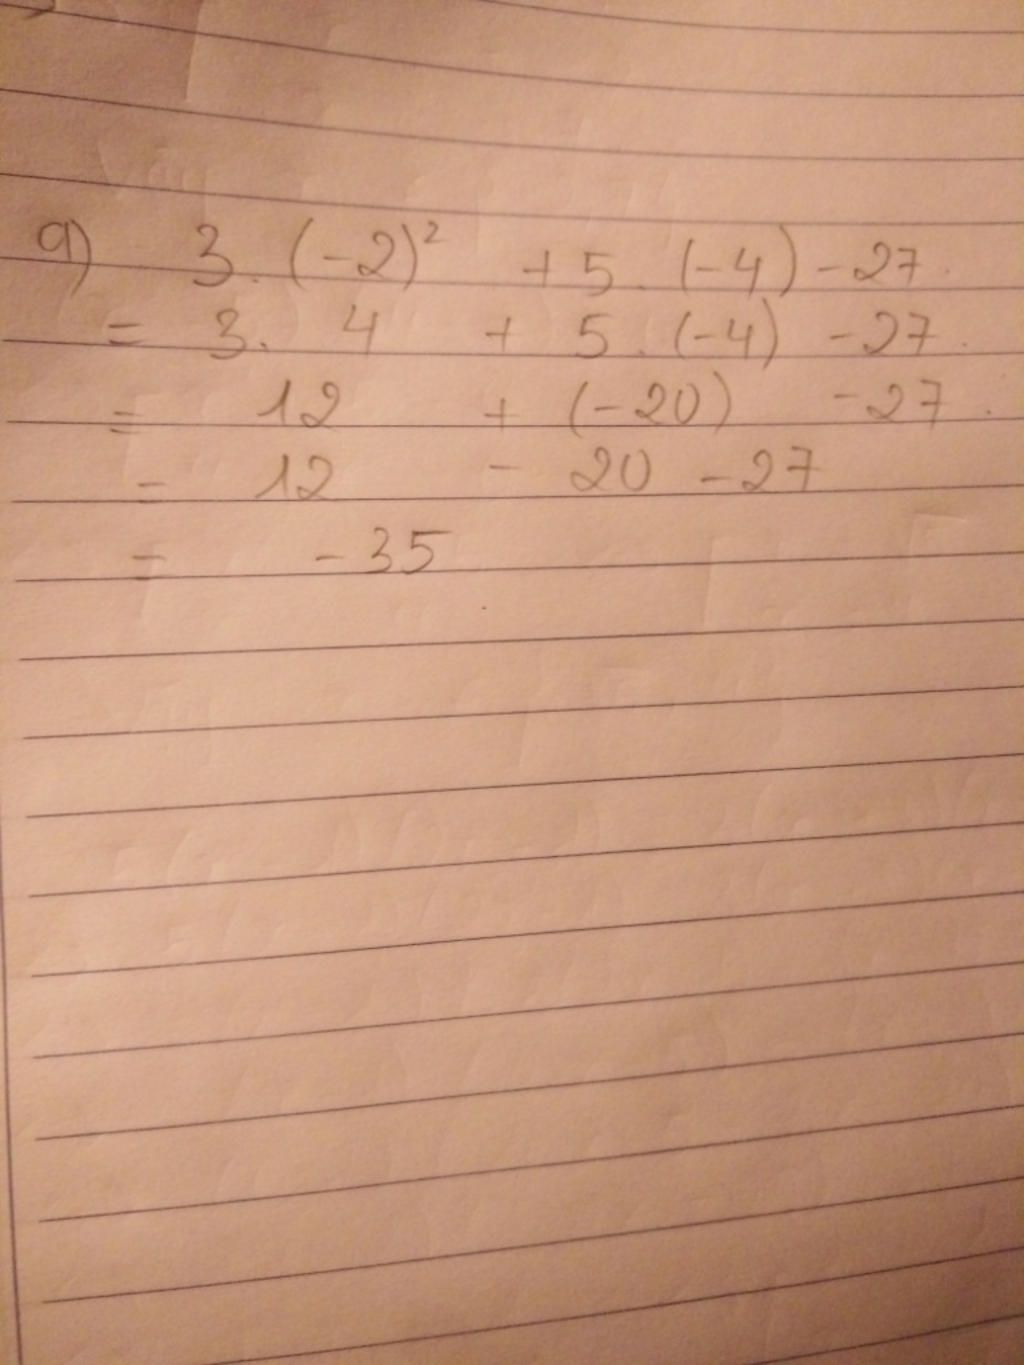 a) 3. (-2)² + 5. (-4) - 27.
= 3. 4 + 5. (-4) - 27.
= 12 + (-20) - 27.
= 12 - 20 - 27
= - 35